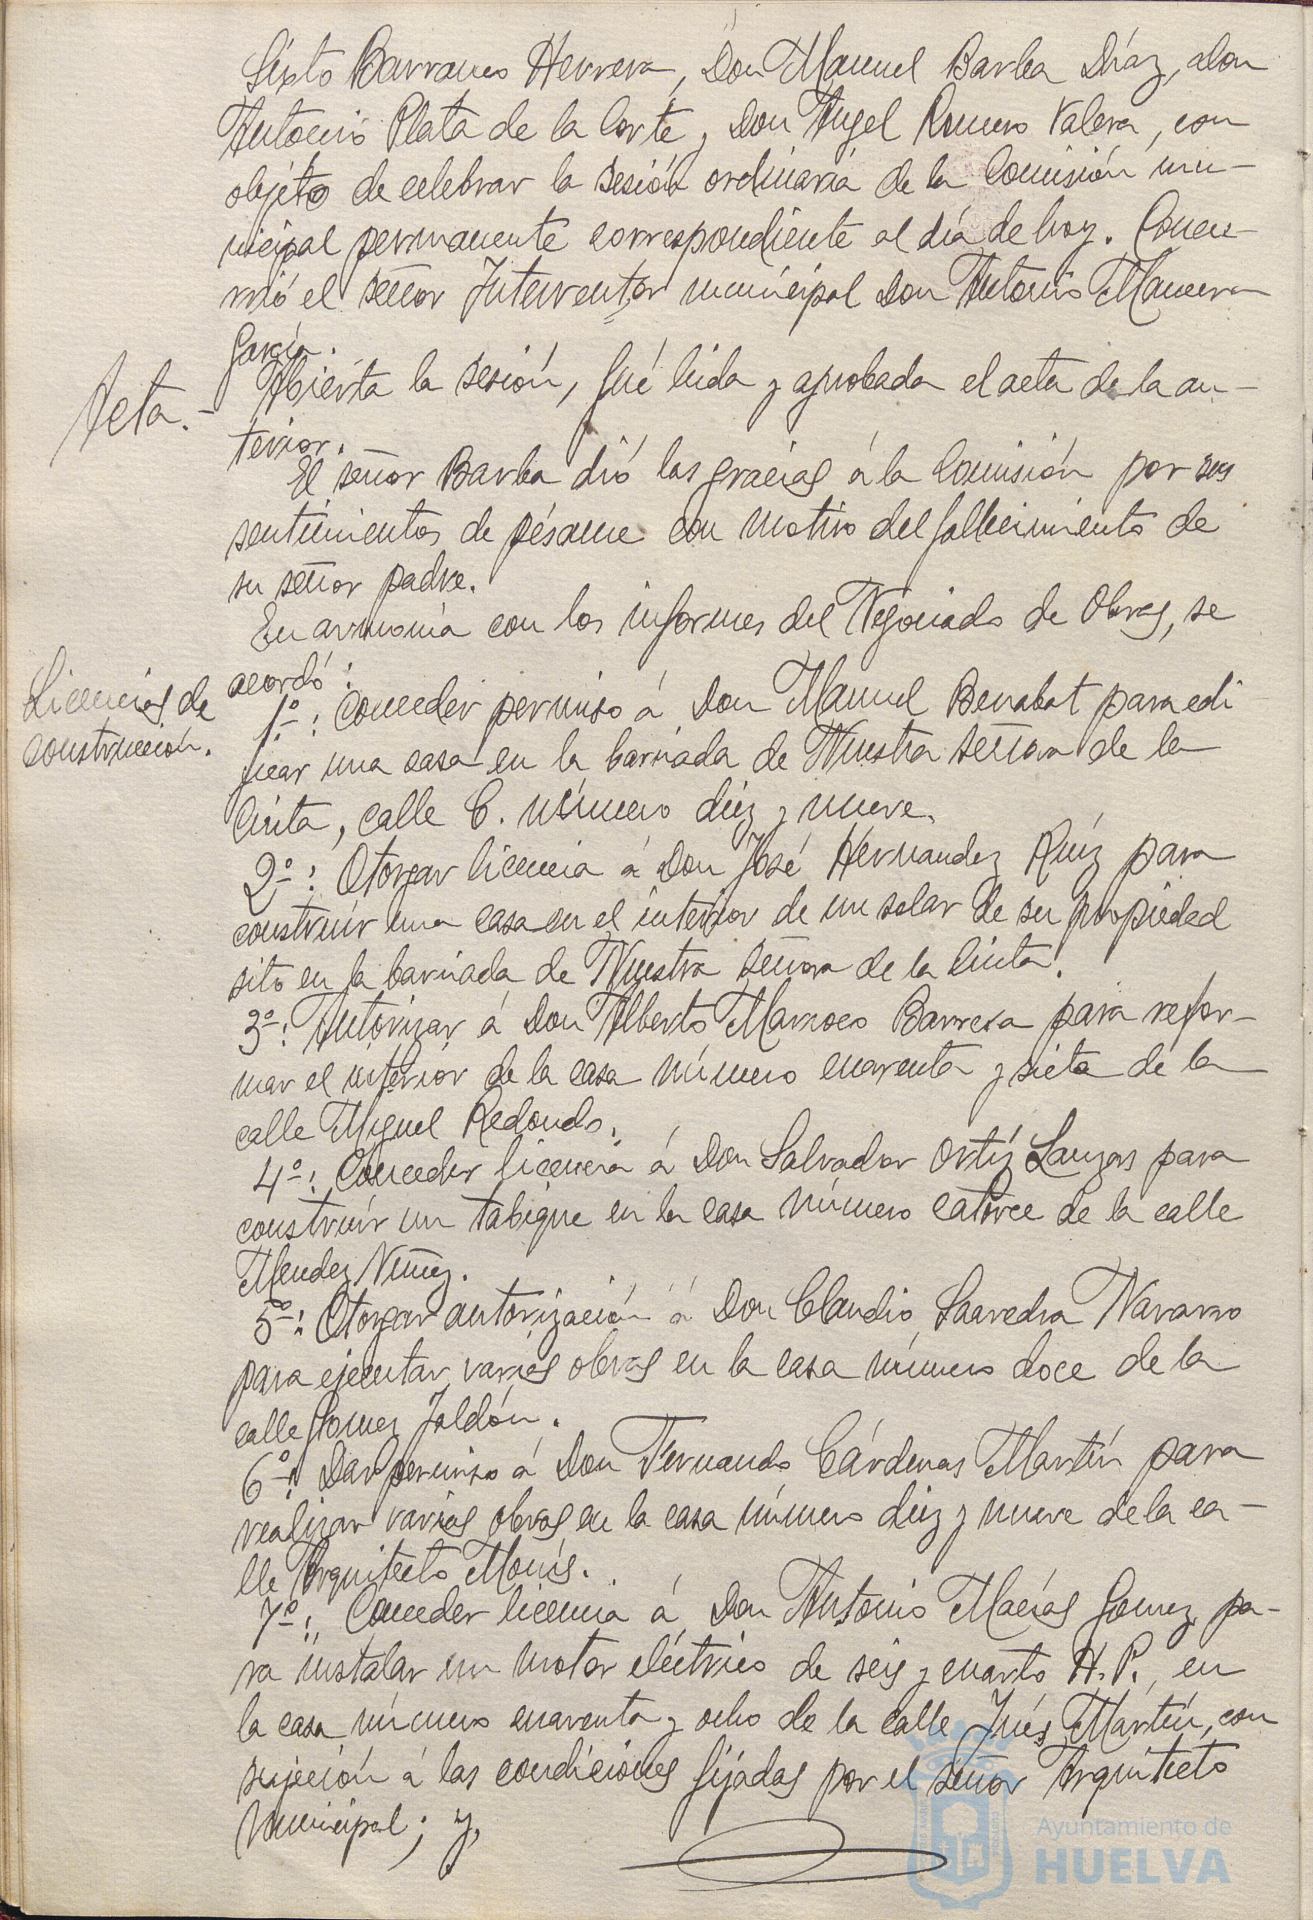 Sixto Barranco Herrera, Don Manuel Barba Díaz, don
Antonio Plata de la Corte y Don Angel Romero Valera, con
objeto de celebrar la sesión ordinaria de la Comisión mu-
nicipal permanente correspondiente al día de hoy. Concu-
rrió el señor Interventor municipal Don Antonio Mancera
García.
Acta.-
Abierta la sesión, fué leida y aprobada el acta de la an-
terior.
El señor Barba dió las gracias á la Comisión por sus
sentimientos de pésame con motivo del fallecimiento de
su señor padre.
En armonía con los informes del Negociado de Obras, se
acordó:
Licencias de
construcción.
1º: Conceder permiso á Don Manuel Benabat para edi
ficar una casa en la barriada de Nuestra señora de la
Cinta, calle C. número diez y nueve.
2º: Otorgar licencia á Don José Hérnandez Ruíz para
construír una casa en el interior de un solar de su propiedad
sito en la barriada de Nuestra señora de la Cinta.
3º: Autorizar á Don Alberto Marroco Barrera para refor-
mar el interior de la casa número cuarenta y siete de la
calle Miguel Redondo.
4º: Conceder licencia á Don Salvador Ortíz para
construír un tabique en la casa número catorce de la calle
Mendez Nuñez.
5º: Otorgar autorización á Don Claudio Saavedra Navarro
para ejecutar varias obras en la casa número doce de la
calle Gomez Jaldón.
6º: Dar permiso á Don Fernando Cárdenas Martín para
realizar varias obras en la casa número diez y nueve de la ca-
lle Arquitecto Monís.
7º: Conceder licencia á Don Antonio Macías Gomez pa-
ra instalar un motor eléctrico de seis y cuarto H.P. en
la casa número cuarenta y ocho de la calle Inés Martín, con
sujeción á las condiciones fijadas por el señor Arquitecto
Municipal; y,
Ayuntamiento de
HUELVA